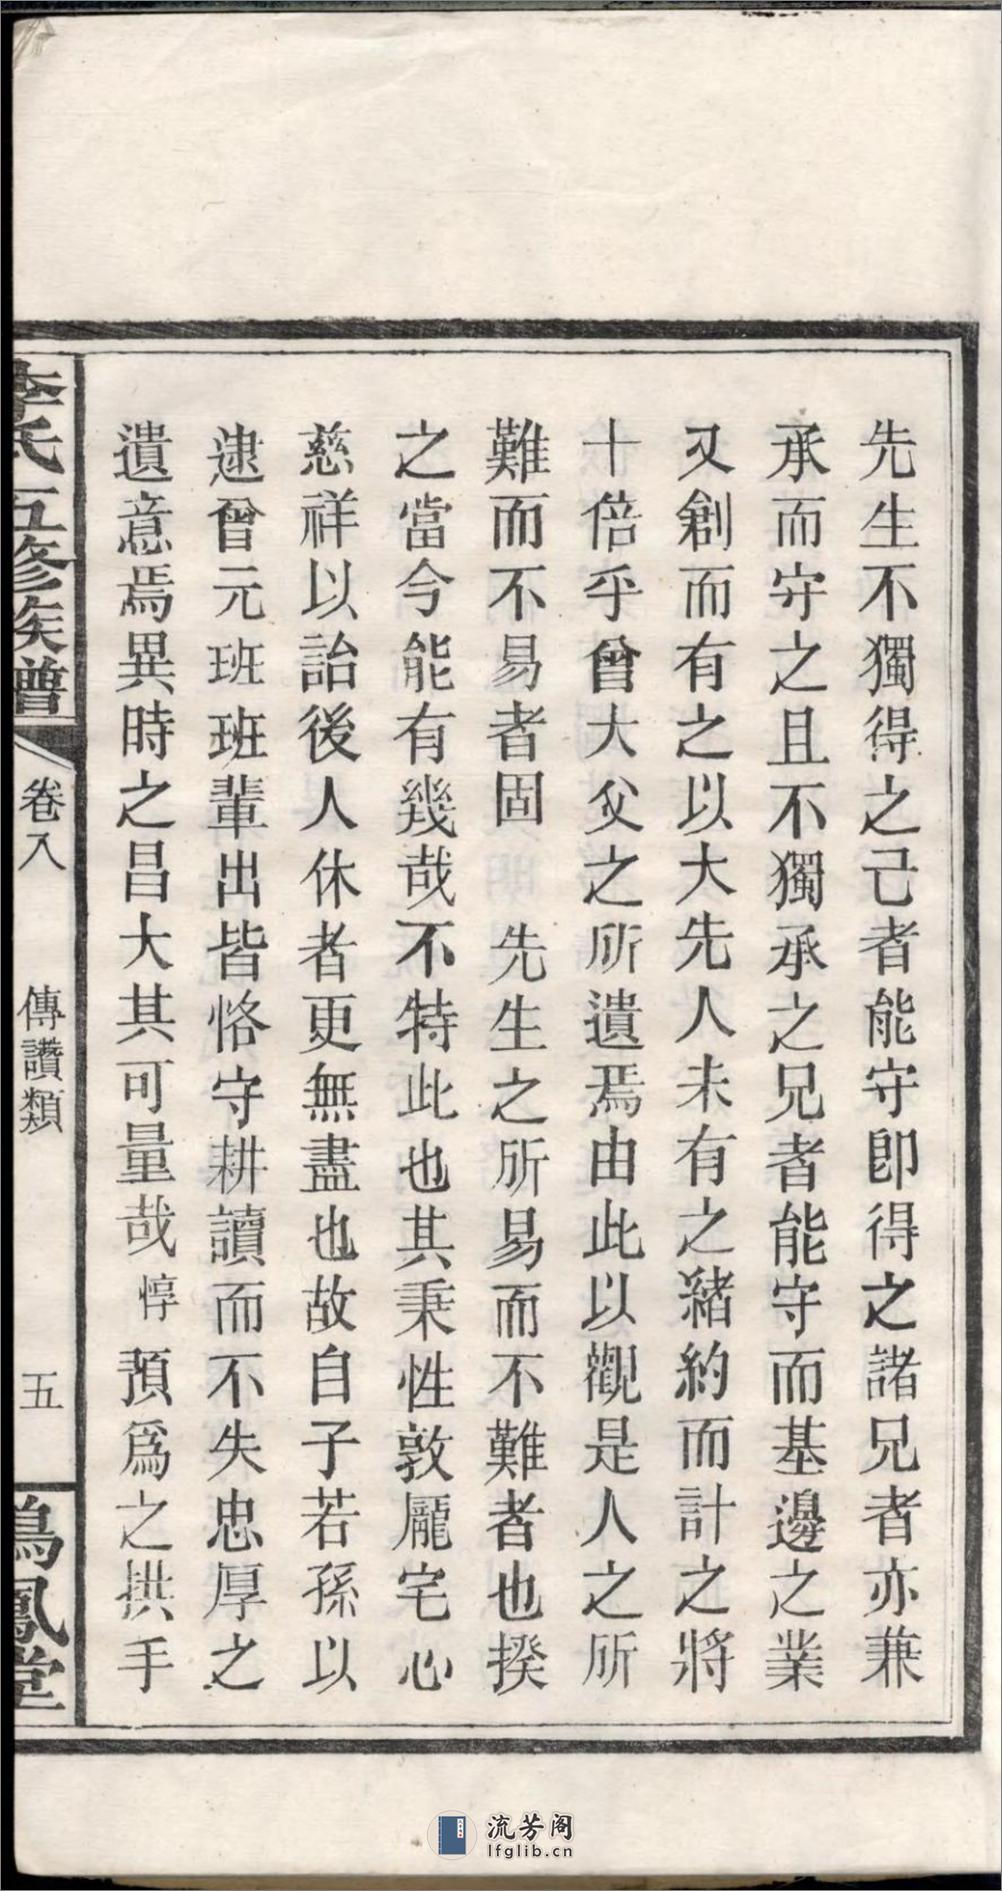 先生不獨得之己者能守即得之諸兄者亦兼
承而守之且不獨承之兄者能守而基邊之業
又創而有之以大先人未有之緒約而計之將
十倍乎曾大父之所遺焉由此以觀是人之所
難而不易者固　先生之所易而不難者也揆
之當今能有幾哉不特此也其秉性敦龐宅心
慈祥以詒後人休者更無盡也故自子若孫以
逮曾元班班輩出皆恪守耕讀而不失忠厚之
遺意焉異時之昌大其可量哉惇預爲之拱手
李氏五修族譜
卷八
傳讚類
五
鳴鳳堂
流芳阁
lfglib.cn